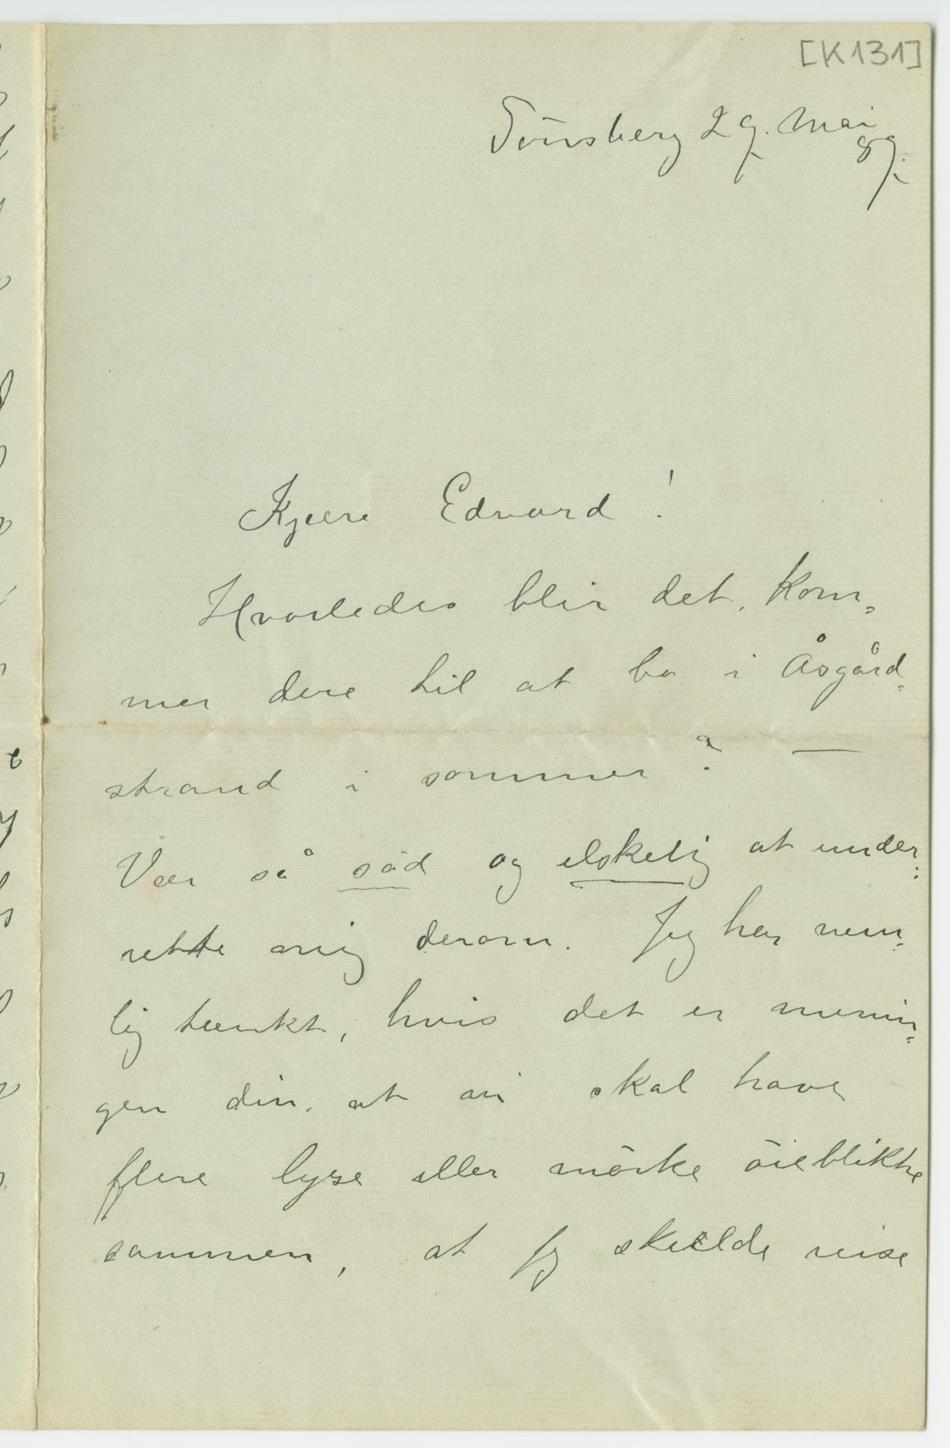 [K131]
Tönsberg 29. Mai
89.
Kjære Edvard!
Hvorledes blir det, kom-
mer dere til at bo i Åsgård-
strand i sommer? —
Vær så söd og elskelig at under-
rette mig derom. Jeg har nem-
lig tænkt, hvis det er menin-
gen din, at vi skal have
flere lyse eller mörke öieblikke
sammen, at jeg skulde reise